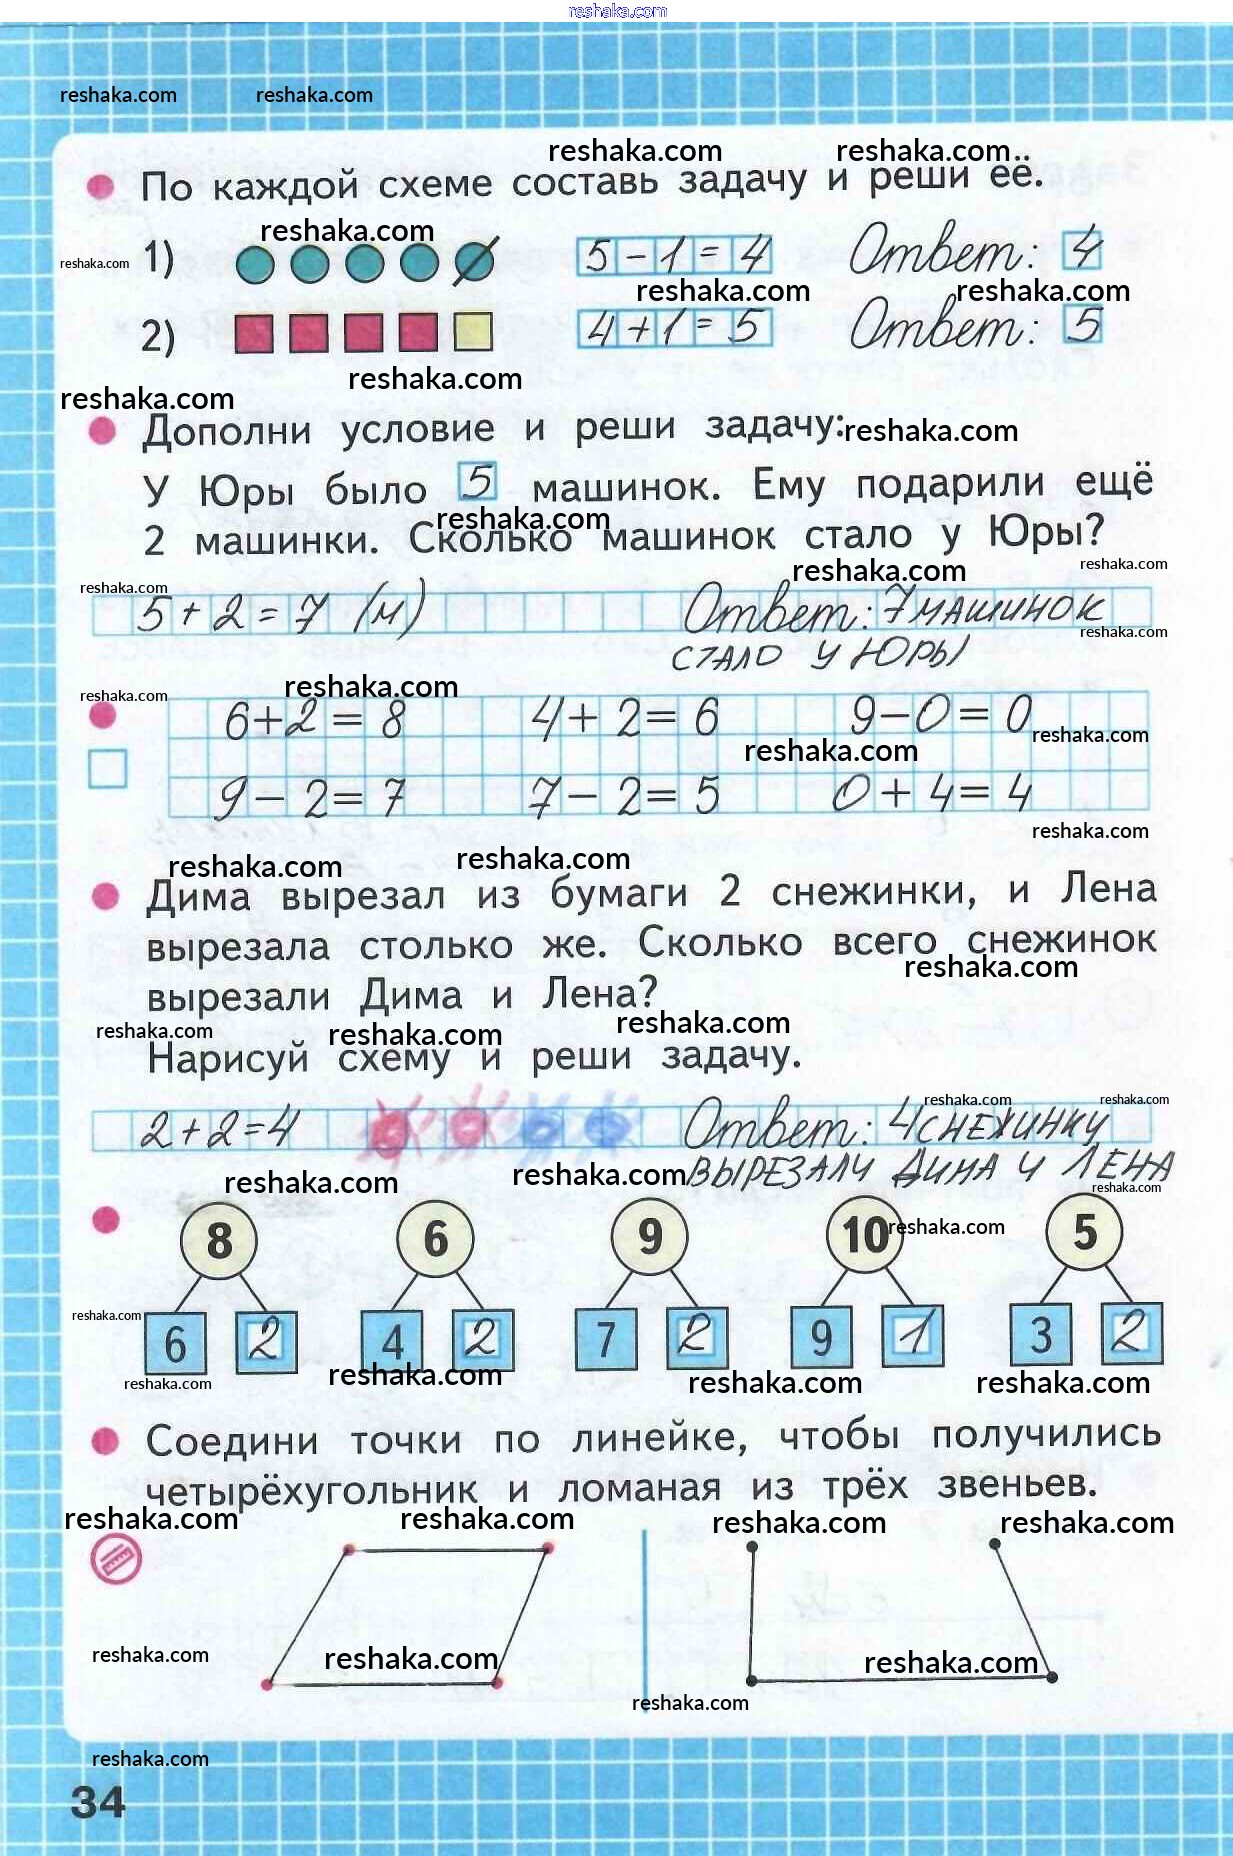 reshaka.com
reshaka.com reshaka.com
reshaka.com reshaka.com
По каждой схеме составь задачу и реши её.
reshaka.com
reshaka.com 1) 5-1=4 Ответ: 4
reshaka.com reshaka.com
2) 4+1=5 Ответ: 5
reshaka.com
reshaka.com
Дополни условие и реши задачу:
reshaka.com
У Юры было 5 машинок. Ему подарили ещё
reshaka.com
2 машинки. Сколько машинок стало у Юры?
reshaka.com reshaka.com
reshaka.com
5+2=7 (м) Ответ: 7 машинок
reshaka.com
стало у Юры
reshaka.com reshaka.com
6+2=8 4+2=6 9-0=0
reshaka.com reshaka.com
9-2=7 7-2=5 0+4=4
reshaka.com
reshaka.com reshaka.com
Дима вырезал из бумаги 2 снежинки, и Лена
вырезала столько же. Сколько всего снежинок
reshaka.com
вырезали Дима и Лена?
reshaka.com reshaka.com reshaka.com
Нарисуй схему и реши задачу.
reshaka.com reshaka.com
2+2=4 Ответ: 4 снежинку
вырезали Дима и Лена
reshaka.com reshaka.com reshaka.com
8 6 9 10 5
reshaka.com
reshaka.com
6 2 4 2 7 2 9 1 3 2
reshaka.com reshaka.com reshaka.com reshaka.com
Соедини точки по линейке, чтобы получились
четырёхугольник и ломаная из трёх звеньев.
reshaka.com reshaka.com reshaka.com reshaka.com
reshaka.com reshaka.com reshaka.com
reshaka.com
reshaka.com
34